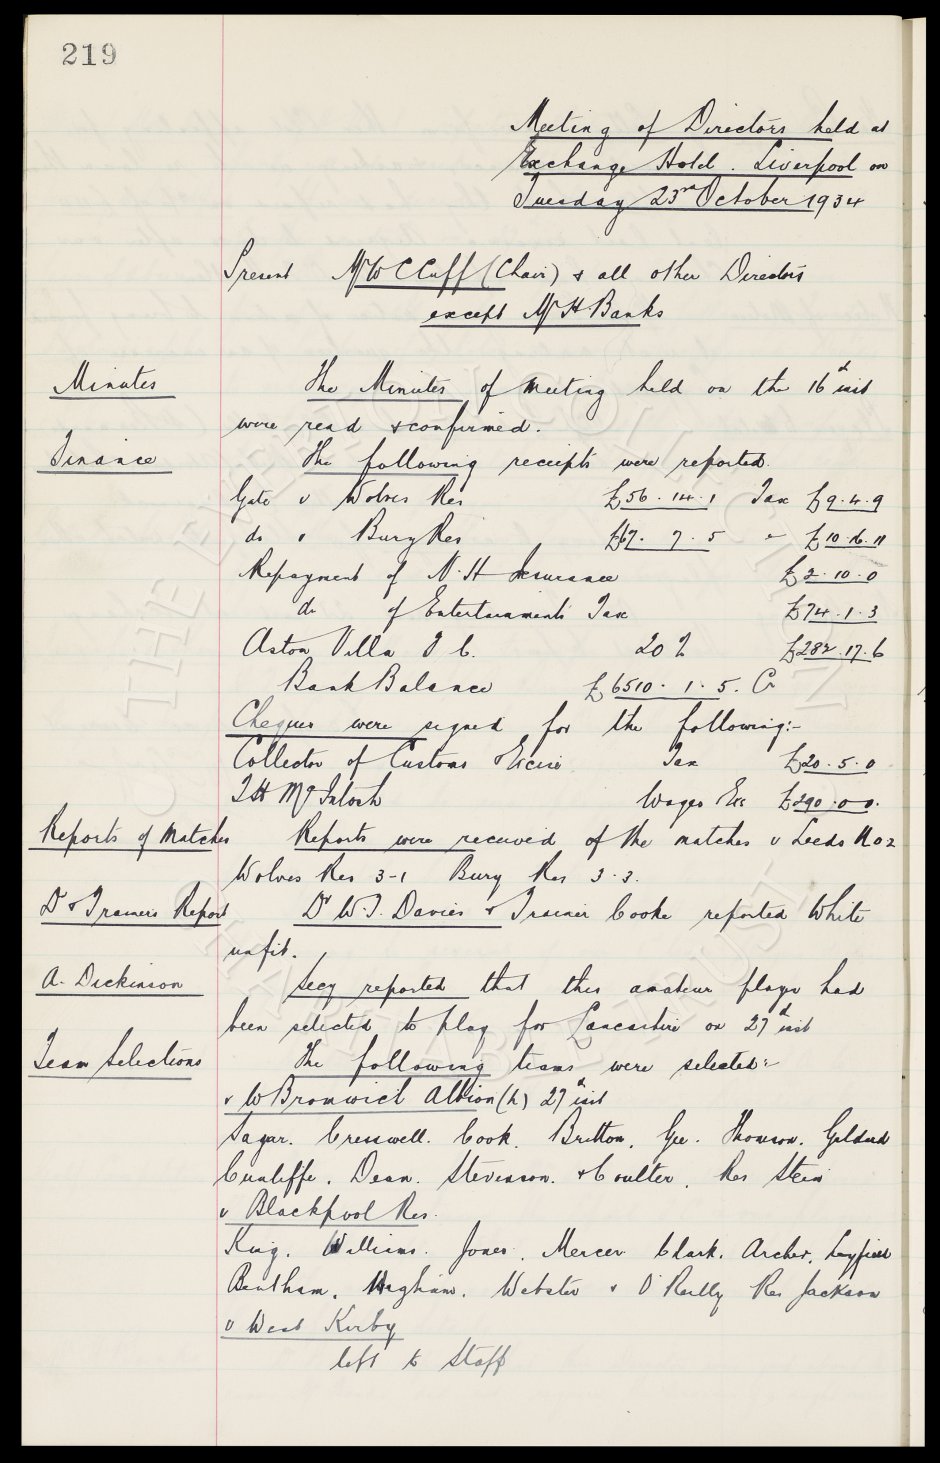 219
Meeting of Directors held at
Exchange Hotel. Liverpool on
Tuesday 23rd October 1934
Present Mr W C Cuff (Chair) & all other Directors
except Mr H Banks
Minutes The Minutes of meeting held on the 16th inst
were read & confirmed.
Finance The following receipts were reported.
Gate v Wolves Res £56.14.1 Tax £9.4.9
do v Bury Res £67.7.5 " £10.16.11
Repayment of N.H Insurance £2.10.0
do of Entertainments Tax £74.1.3
Aston Villa F C. 20% £282.17.6
Bank Balance £6510.1.5. Cr
Cheques were signed for the following:-
Collector of Customs & Excise Tax £20.5.0
T H McIntosh Wages Etc £290.0.0.
Reports of Matches Reports were received of the matches v Leeds U 0 2
Wolves Res 3-1 Bury Res 3.3.
Dr & Trainers Report Dr W.T. Davies & Trainer Cooke reported White
unfit.
A. Dickinson Secy reported that this amateur player had
been selected to play for Lancashire on 27th inst
Team Selections The following teams were selected:-
v W Bromwich Albion (h) 27th inst
Sagar. Cresswell. Cook. Britton. Gee. Thomson. Geldard
Cunliffe. Dean. Stevenson. & Coulter. Res Stein
v Blackpool Res.
King. Williams. Jones. Mercer Clark. Archer. Leyfield
Bentham. Higham. Webster & O'Reilly Res Jackson
v West Kirby
left to Staff